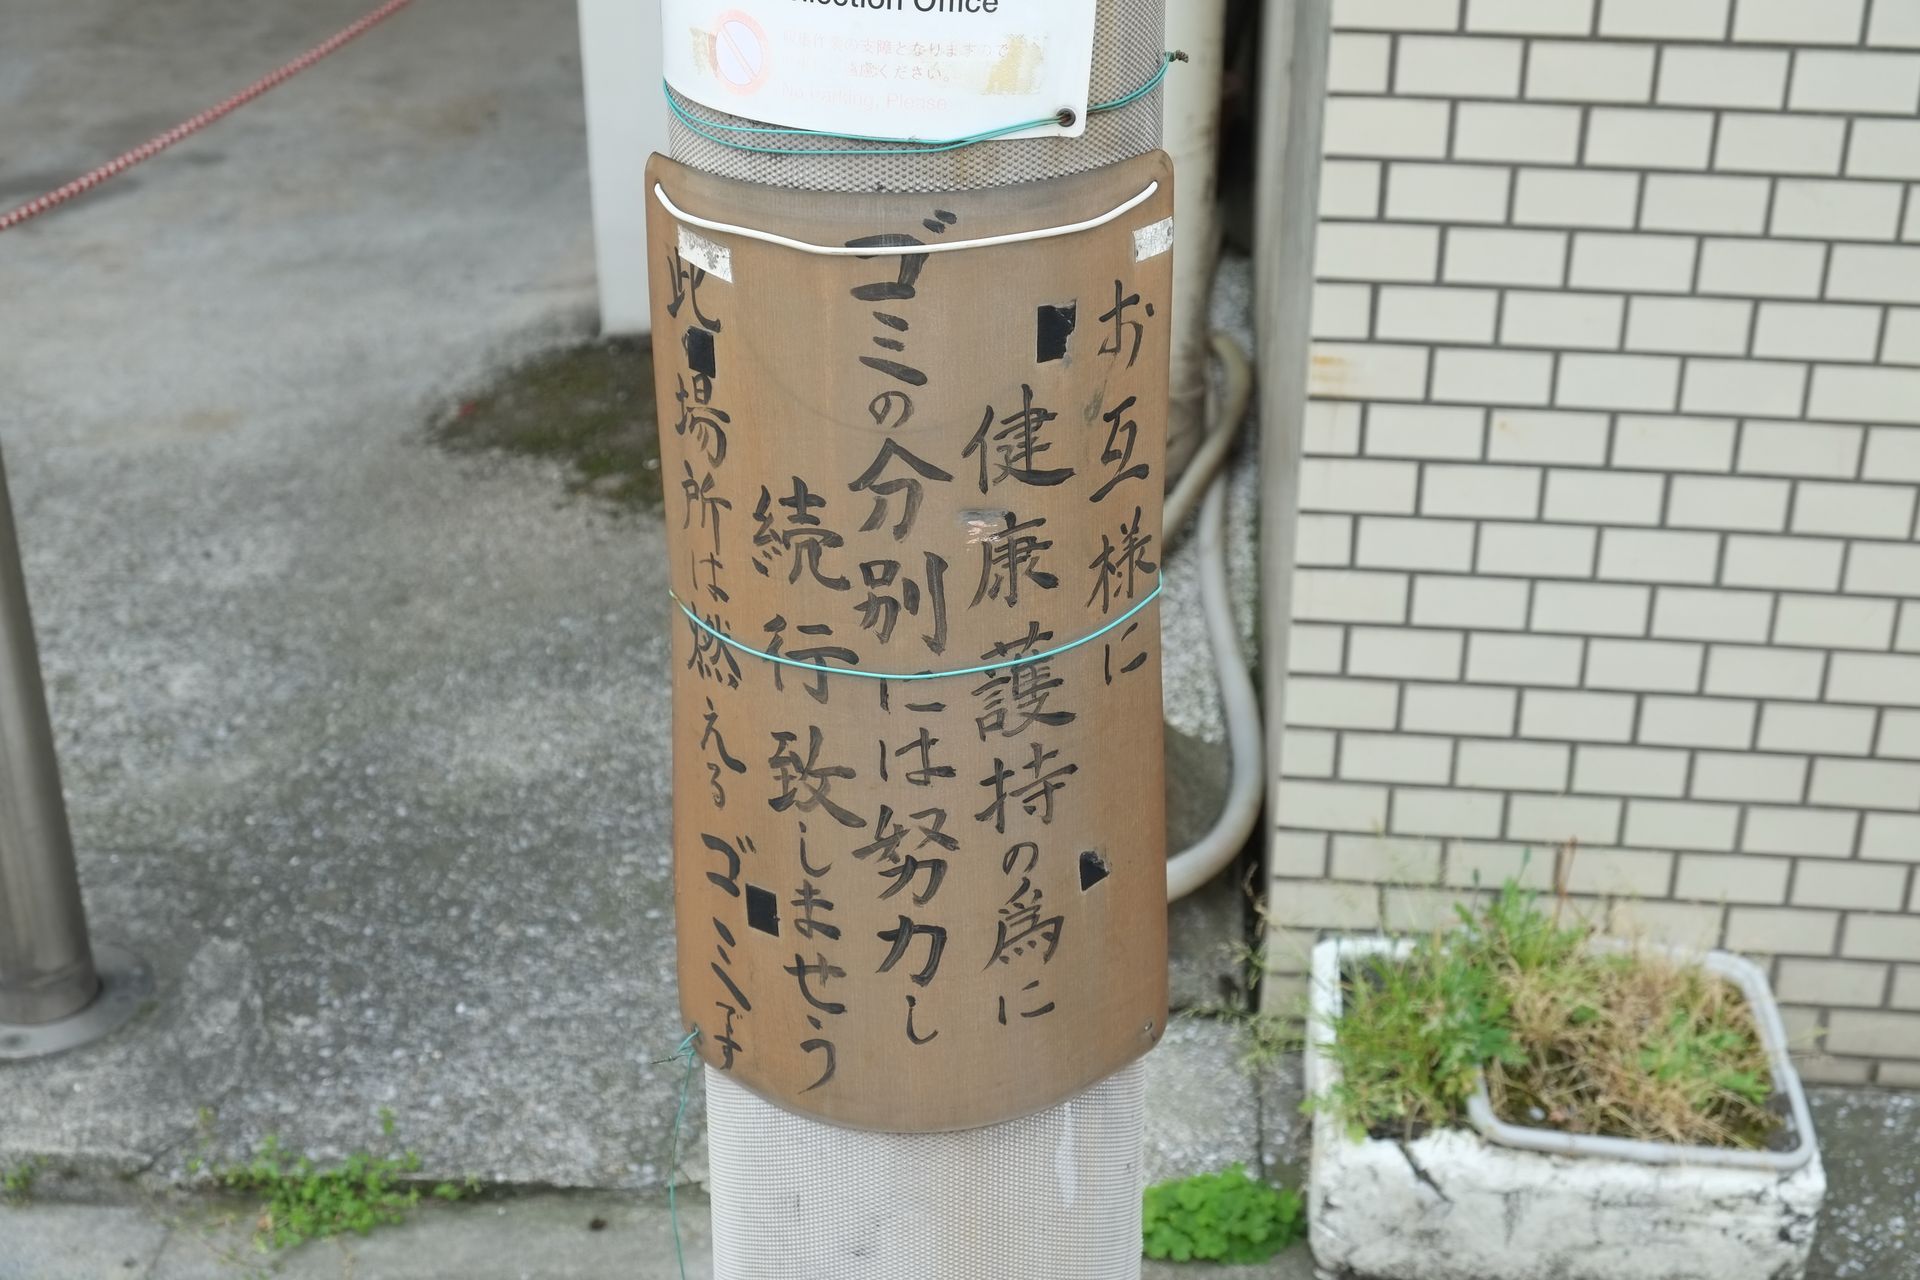 llection Office
の支障となりますので
ください。
No Parking, Please
お互様に
健康護持の為に
ゴミの分別には努力し
続行致しませう
此の場所は燃えるゴミです